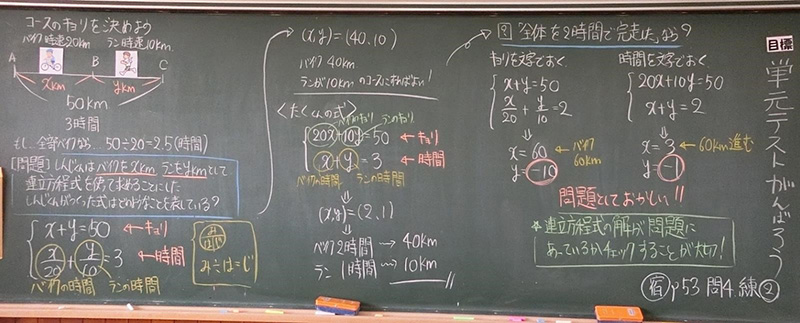 コースのキョリを決めよう
バイク時速20km ラン時速10km
A B C
xkm ykm
50km
3時間
もし、全部バイクなら、50÷20=2.5(時間)
[問題]しんじくんはバイクをxkm ランをykmとして
連立方程式を使って求めることにした
しんじくんがつくった式はどのようなことを表している?
x+y=50 ←キョリ
x/20+y/10=3 ←時間
バイクの時間 ランの時間
み
は じ
み÷は=じ
(x,y)=(40,10)
バイク40km
ランが10kmのコースにすればよい!
<たくくんの式>
バイクのキョリ ランのキョリ
20x+10y=50 ←キョリ
x+y=3 ←時間
バイクの時間 ランの時間
⇓
(x,y)=(2,1)
バイク2時間 → 40km
ラン1時間 → 10km
「全体を2時間で完走した」なら?
キョリを文字でおく
x+y=50
x/20+y/10=2
⇓
x=60 ←バイク60km
y=-10
時間を文字でおく
20x+10y=50
x+y=2
⇓
x=3 ←60km進む
y=-1
問題としておかしい!!
☆連立方程式の解が問題に
あっているかチェックすることが大切!
目標
単元テストがんばろう
宿 p53 問4 練②